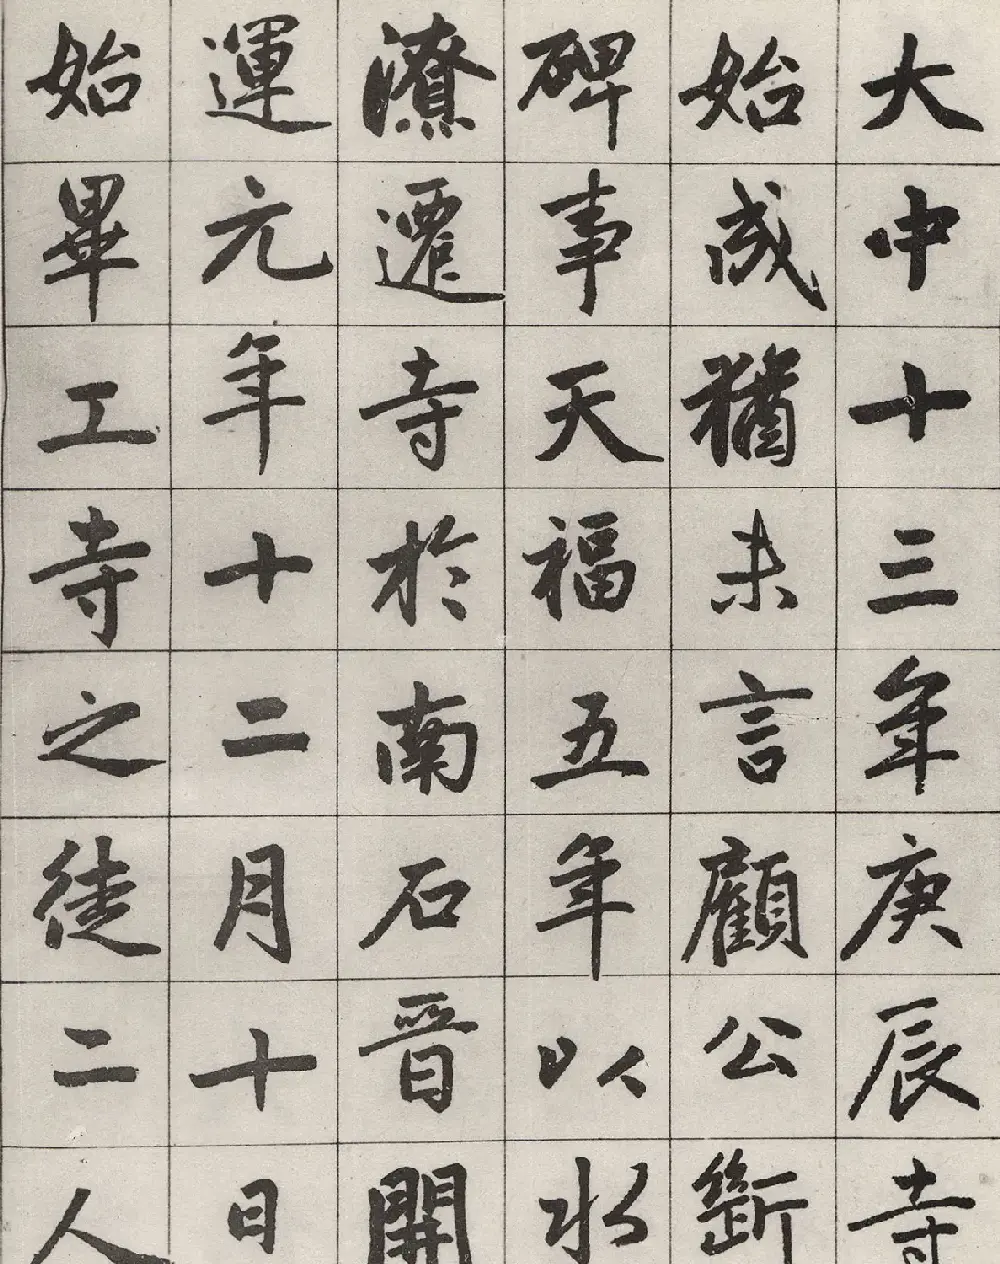 大中十三年庚辰寺
始成猶未言顧公斷
碑事天福五年以水
潦遷寺於南石晉開
運元年十二月十日
始畢工寺之徒二人